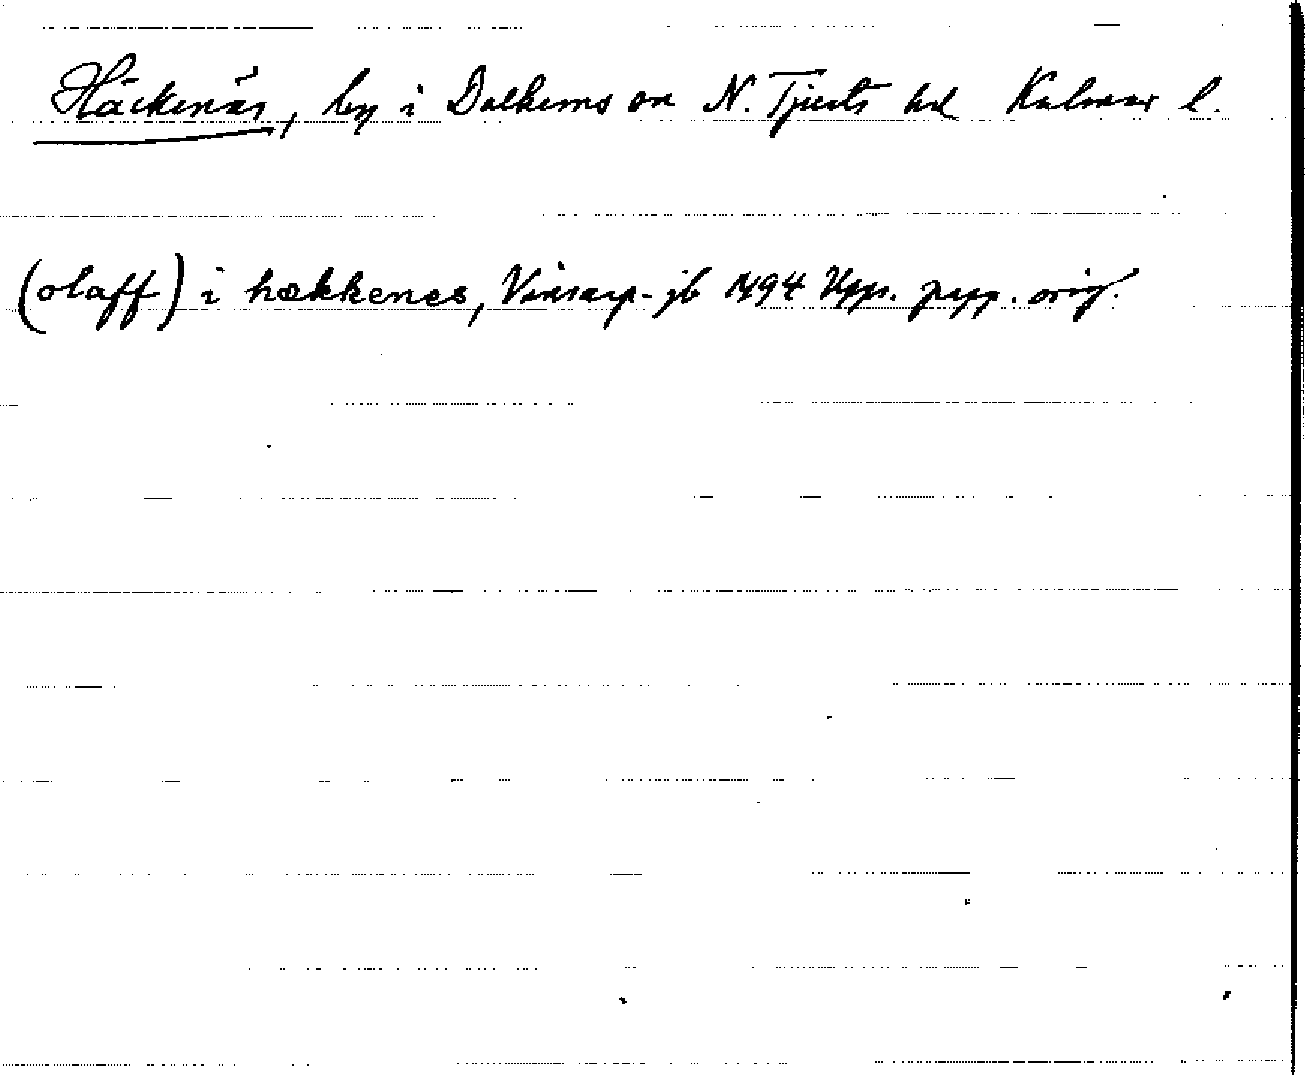 Häckenäs, by i Dalhems sn N. Tjusts hd Kalmar l.
(olaff) i hækkenes, Vinsarp-jb 1494 Upps. papp. orig.